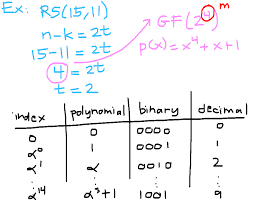 Ex: RS(15,11)
n-k=2t
15-11=2t
4=2t
t=2
GF(2⁴) m
p(x)=x⁴+x+1
index polynomial binary decimal
0 0 0000 0
α⁰ 1 0001 1
α¹ α 0010 2
⋮ ⋮ ⋮ ⋮
α¹⁴ α³+1 1001 9